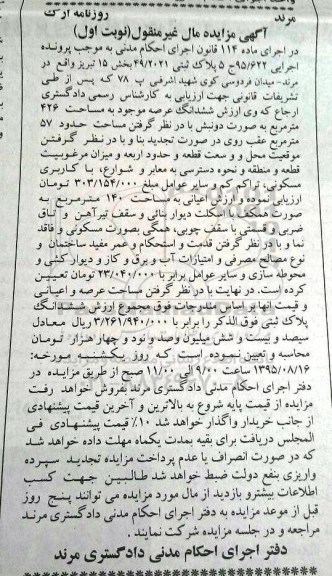 مرند
روزنامه ارک
آگهی مزایده مال غیرمنقول(نوبت اول)
در اجرای ماده ۱۱۴ قانون اجرای احکام مدنی به موجب پرونده
اجرایی ۹۵/۶۲۲ج ۵ پلاک ثبتی ۴۹/۲۰۲۱ بخش ۱۵ تبریز واقع در
مرند- میدان فردوسی کوی شهید اشرفی پ ۷۸ که پس از طی
تشریفات قانونی جهت ارزیابی به کارشناس رسمی دادگستری
ارجاع که وی ارزش ششدانگ عرصه موجود به مساحت ۴۲۶
مترمربع به صورت دونبش با در نظر گرفتن مساحت حدود ۵۷
مترمربع عقب روی در صورت تجدید بنا و با در نظر گرفتن
موقعیت محل و وسعت قطعه و حدود اربعه و میزان مرغوبیت
قطعه و منطقه و نحوه دسترسی به معابر و شوارع، با کاربری
مسکونی، تراکم کم و سایر عوامل مبلغ ۳۰۳/۱۵۴/۰۰۰ تومان
ارزیابی نموده و ارزش اعیانی به مساحت ۱۴۰ مترمربع به
صورت همکف با اسکلت دیوار بنائی و سقف تیرآهن و تاق
ضربی و قسمتی با سقف چوبی، همگی بصورت مسکونی و فاقد
نما و با در نظر گرفتن قدمت و استحکام و عمر مفید ساختمان و
نوع مصالح مصرفی و امتیازات آب و برق و گاز و دیوار کشی و
محوطه سازی و سایر عوامل برابر با ۲۳/۰۴۰/۰۰۰ تومان تعیین
کرده است. در نهایت با در نظر گرفتن مساحت عرصه و اعیانی
و قیمت آنها بر اساس مندرجات فوق مجموع ارزش ششدانگ
پلاک ثبتی فوق الذکر را برابر با ۳/۲۶۱/۹۴۰/۰۰۰ ریال معادل
سیصد و بیست و شش میلیون وصد و نود و چهار هزار تومان
محاسبه و تعیین نموده است که روز یکشنبه مورخه:
۱۳۹۵/۰۸/۱۶ ساعت ۹/۰۰ الی ۱۱/۰۰ صبح از طریق مزایده در
دفتر اجرای احکام مدنی دادگستری مرند بفروش خواهد رفت
مزایده از قیمت پایه شروع به بالاترین و آخرین قیمت پیشنهادی
از جانب خریدار واگذار خواهد شد ۱۰٪ قیمت پیشنهادی فی
المجلس دریافت برای بقیه بمدت یکماه مهلت داده خواهد شد
که در صورت انصراف یا عدم پرداخت مزایده تجدید سپرده
واریزی بنفع دولت ضبط خواهد شد طالبین جهت کسب
اطلاعات بیشترو بازدید از مال مورد مزایده می توانند پنج روز
قبل از موعد مزایده به دفتر اجرای احکام مدنی دادگستری مرند
مراجعه و در جلسه مزایده شرکت نمایند.
دفتر اجرای احکام مدنی دادگستری مرند